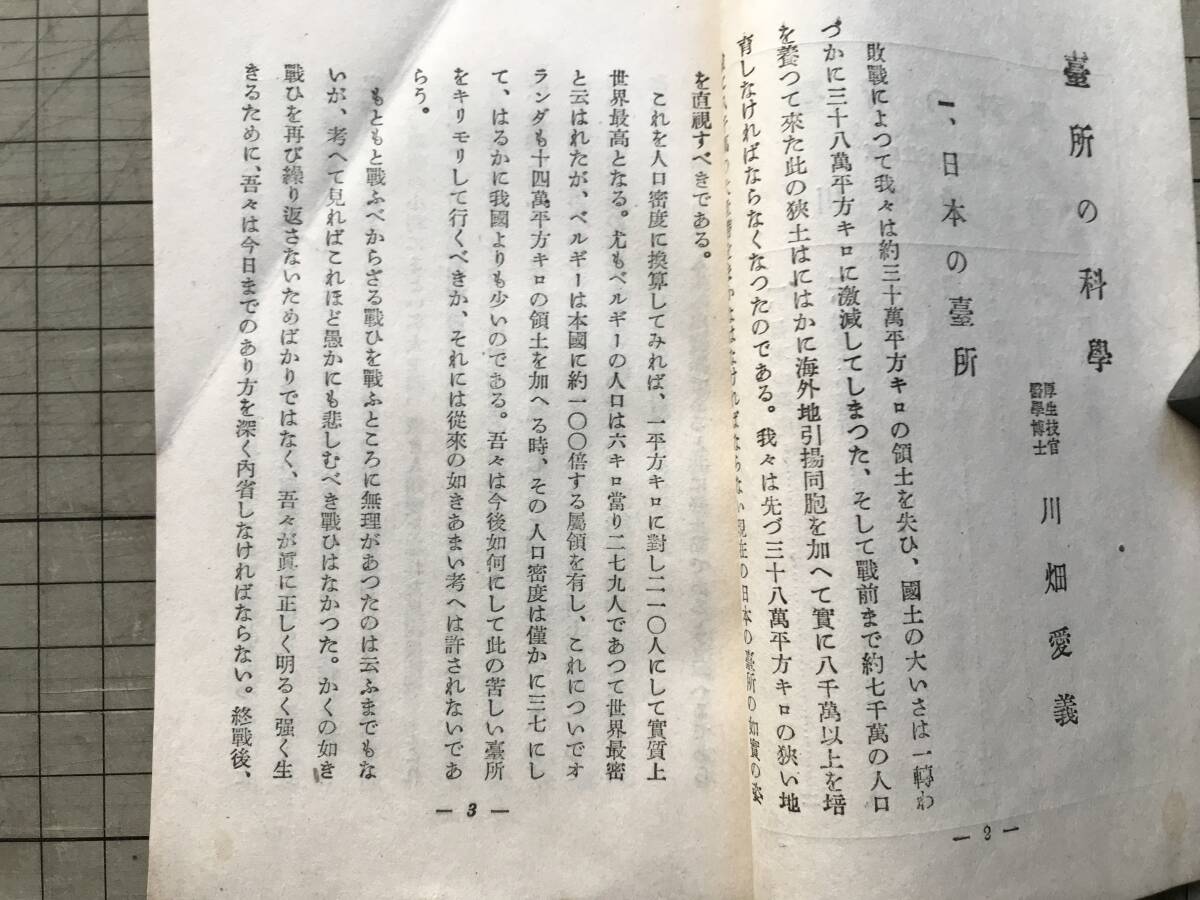 臺所の科學
厚生技官
醫學博士
川畑愛義
一、日本の臺所
敗戰によつて我々は約三十萬平方キロの領土を失ひ、國土の大いさは一轉わ
づかに三十八萬平方キロに激減してしまつた、そして戰前まで約七千萬の人口
を養つて來た此の狹土はにはかに海外地引揚同胞を加へて實に八千萬以上を培
育しなければならなくなつたのである。我々は先づ三十八萬平方キロの狹い地
なければならない現在の日本の臺所の如實の姿
— 2 —
を直視すべきである。
これを人口密度に換算してみれば、一平方キロに對し二一〇人にして實質上
世界最高となる。尤もベルギーの人口は六キロ當り二七九人であつて世界最密
と云はれたが、ベルギーは本國に約一〇〇倍する屬領を有し、これについでオ
ランダも十四萬平方キロの領土を加へる時、その人口密度は僅かに三七にし
て、はるかに我國よりも少いのである。吾々は今後如何にして此の苦しい臺所
をキリモリして行くべきか、それには從來の如きあまい考へは許されないであ
らう。
もともと戰ふべからざる戰ひを戰ふところに無理があつたのは云ふまでもな
いが、考へて見ればこれほど愚かにも悲しむべき戰ひはなかつた。かくの如き
戰ひを再び繰り返さないためばかりではなく、吾々が眞に正しく明るく强く生
きるために、吾々は今日までのあり方を深く內省しなければならない。終戰後、
— 3 —